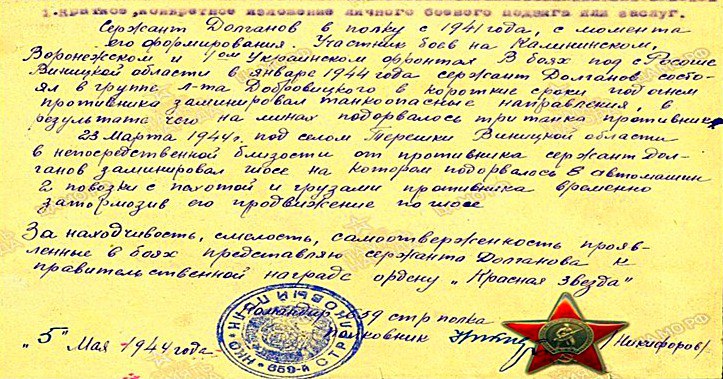 1. Краткое, конкретное изложение личного боевого подвига или заслуг.
Сержант Долганов в полку с 1941 года, с момента
его формирования. Участник боев на Калининском,
Воронежском и 1ом Украинском фронтах В боях под с Россоше
Виницкой области в январе 1944 года сержант Долганов состо-
ял в группе л-та Добровицкого в короткие сроки под огнем
противника заминировал танкоопасные направления, в
результате чего на минах подорвалось три танка противника
23 Марта 1944г. под селом Терешки Виницкой области
в непосредственной близости от противника сержант Дол-
ганов заминировал шоссе на котором подорвалось 8 автомашин
2 повозки с пехотой и грузами противника временно
затормозив его продвижение по шоссе
За находчивость, смелость, самоотверженность прояв-
ленные в боях представляю сержанта Долганова к
правительственной награде ордену „Красная звезда"
Командир 659 стр полка
Полковник /Никифоров/
„5" Мая 1944 года.
659-й СТРЕЛКОВЫЙ ПОЛК
НКО